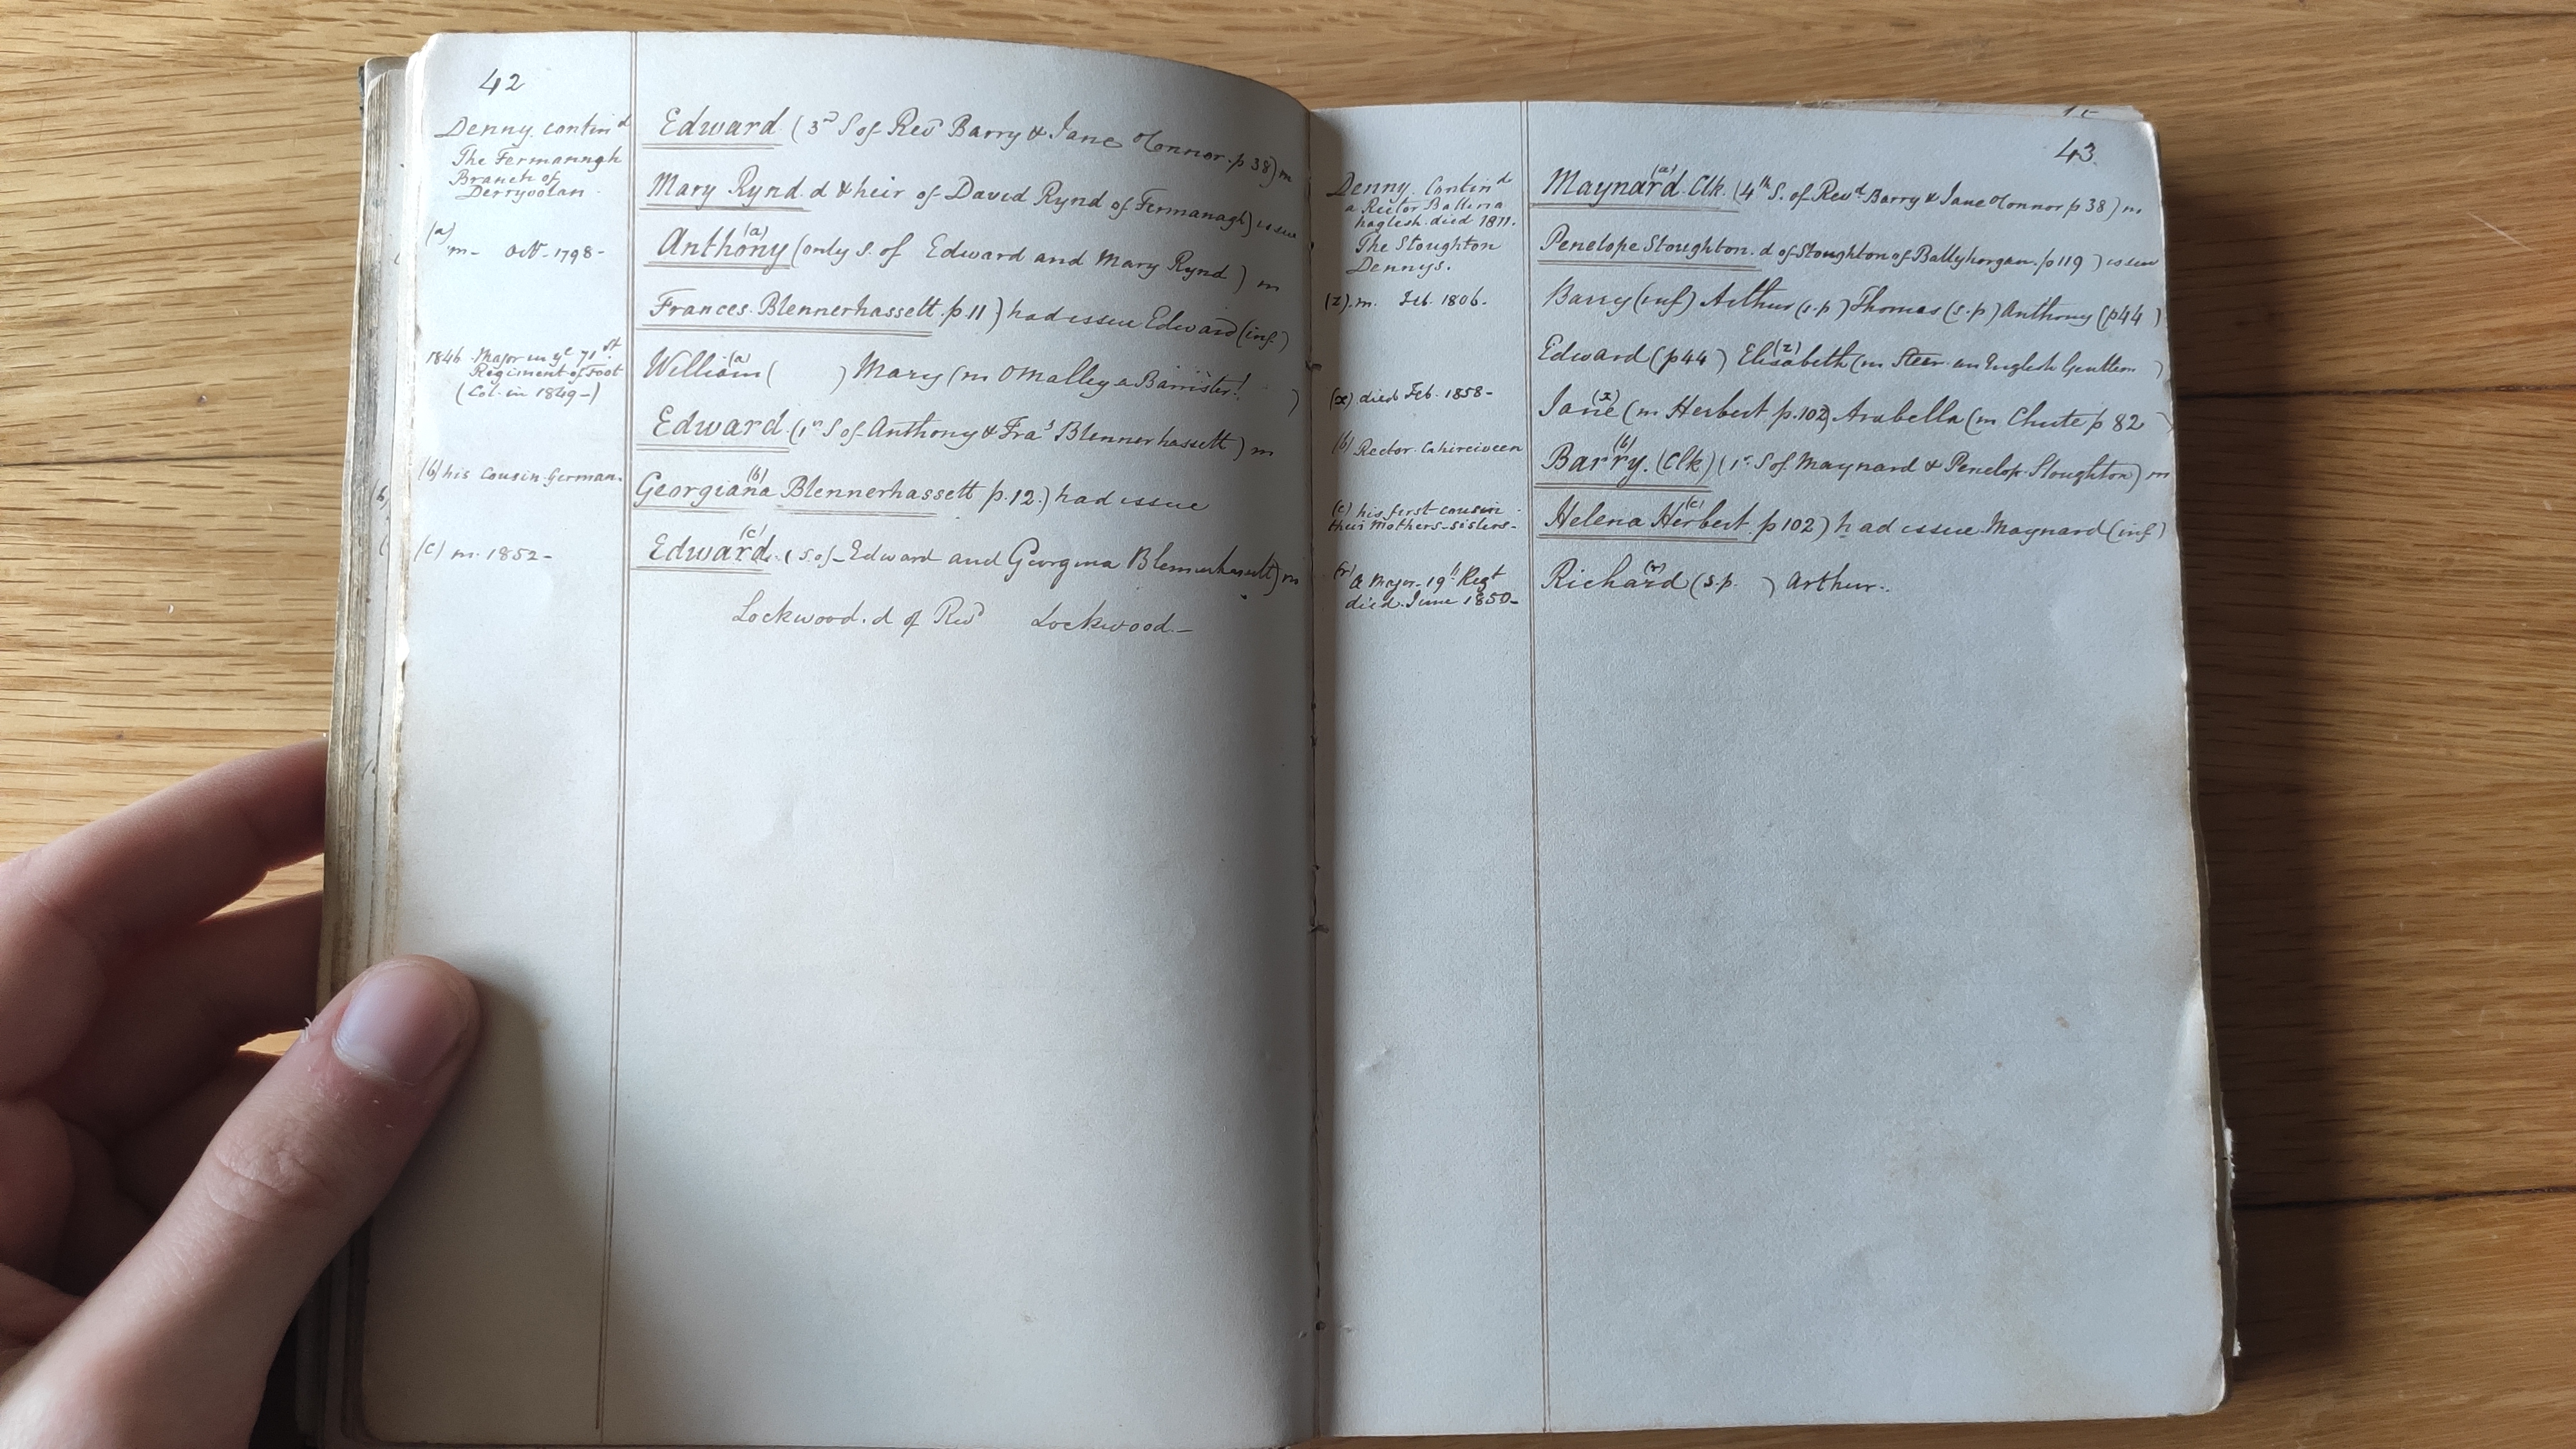 42
Denny. contind
The Fermanagh
Branch of
Derryvolan
(a)
m- Octr- 1798-
1846 Major in ye 71st
Regiment of Foot
(Col. in 1849-)
(b) his Cousin German.
(c) m. 1852-
Edward (3rd S of Revd Barry & Jane OConnor. p 38) m
Mary Rynd. d & heir of David Rynd of Fermanagh) issue
Anthony (a) (only S. of Edward and Mary Rynd) m
Frances. Blennerhassett. p. 11) had issue Edward (inf)
William (a) ( ) Mary (m OMalley a Barrister! )
Edward. (1st S of Anthony & Fras Blennerhassett) m
Georgiana (b) Blennerhassett p. 12.) had issue
Edward. (c) (S of Edward and Georgina Blennerhassett) m
Lockwood. d of Revd Lockwood.-
43
Denny. Contind
a Rector Ballina
haglish. died 1811.
The Stoughton
Dennys.
(z). m. Feb. 1806.
(x) died Feb. 1858-
(b) Rector. Cahirciveen
(c) his first cousin.
their Mothers-sisters-
(r) a Major- 19th Regt
died. June 1850-
Maynard. (a) Clk. (4th S. of Revd Barry & Jane OConnor p 38) m
Penelope Stoughton. d of Stoughton of Ballyhorgan. p 119) issue
Barry (inf) Arthur (s.p) Thomas (s.p) Anthony (p44)
Edward (p44) Elisabeth (z) (m Steer an English Gentlem )
Jane (x) (m Herbert p. 102) Arabella (m Chute p 82 )
Barry. (b) (Clk) (1st S of Maynard & Penelop. Stoughton) m
Helena Herbert. (c) p 102) had issue Maynard (inf)
Richard (r) (s.p. ) Arthur.